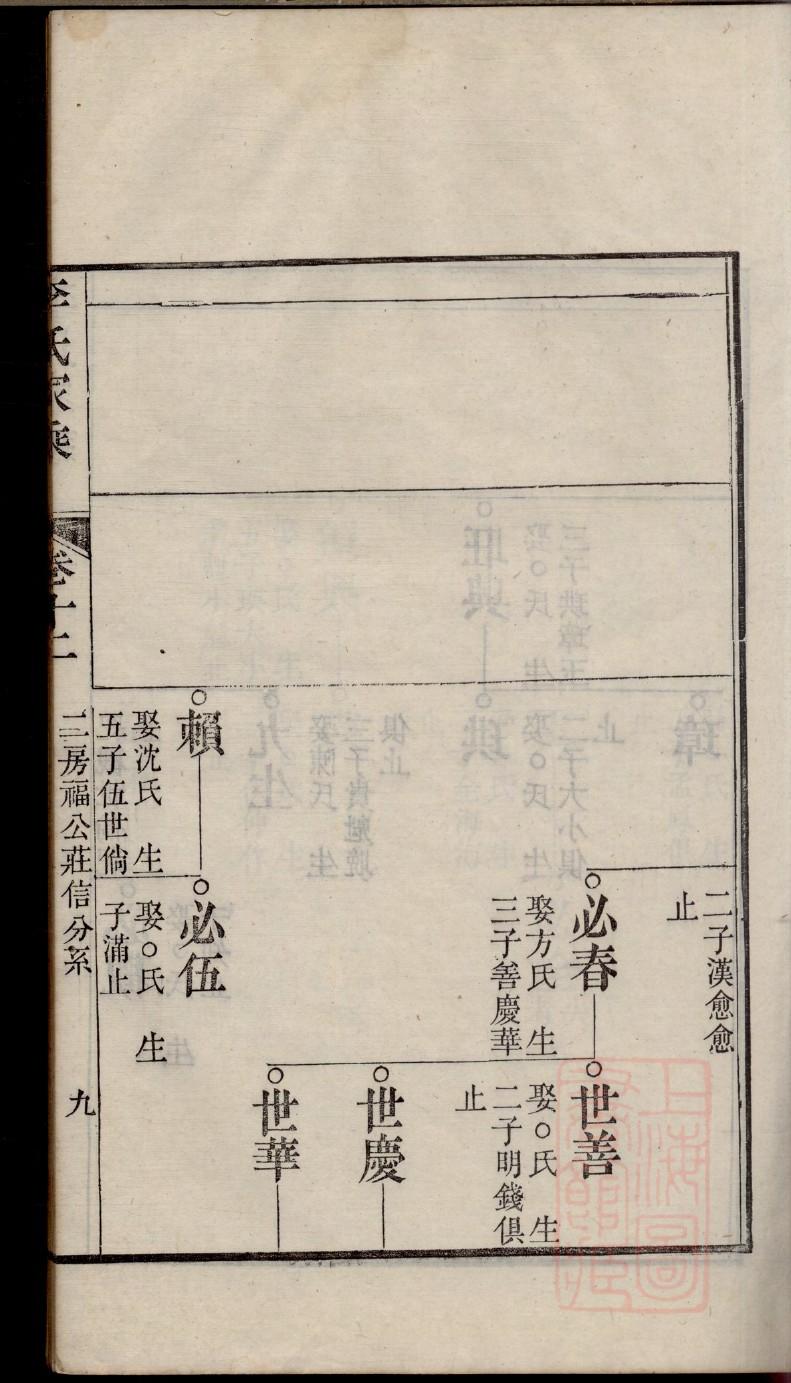 二子漢愈愈
止
必春
娶方氏 生
三子善慶華
世善
娶○氏 生
二子明錢俱
止
世慶
世華
賴
娶沈氏 生
五子伍世倘
必伍
娶○氏 生
子滿止
李氏家乘
卷十二
二房福公莊信分系
九